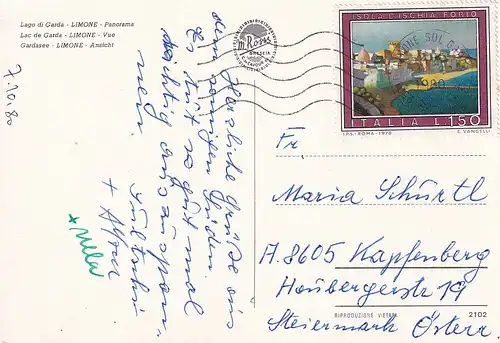 Lago di Garda - LIMONE - Panorama
Lac de Garda - LIMONE - Vue
Gardasee - LIMONE - Ansicht
7.10.80
Herzliche Grüße aus
dem sonnigen Süden.
Es tut so gut mal
richtig auszuspan-
nen.
+ Alfred
BRESCIA
ISOLA D'ISCHIA FORIO
ITALIA L.150
I.P.S.-ROMA-1976 E. VANGELLI
Fr
Maria Schürtl
A. 8605 Kapfenberg
Haubergerstr 19
Steiermark Österr.
RIPRODUZIONE VIETATA 2102